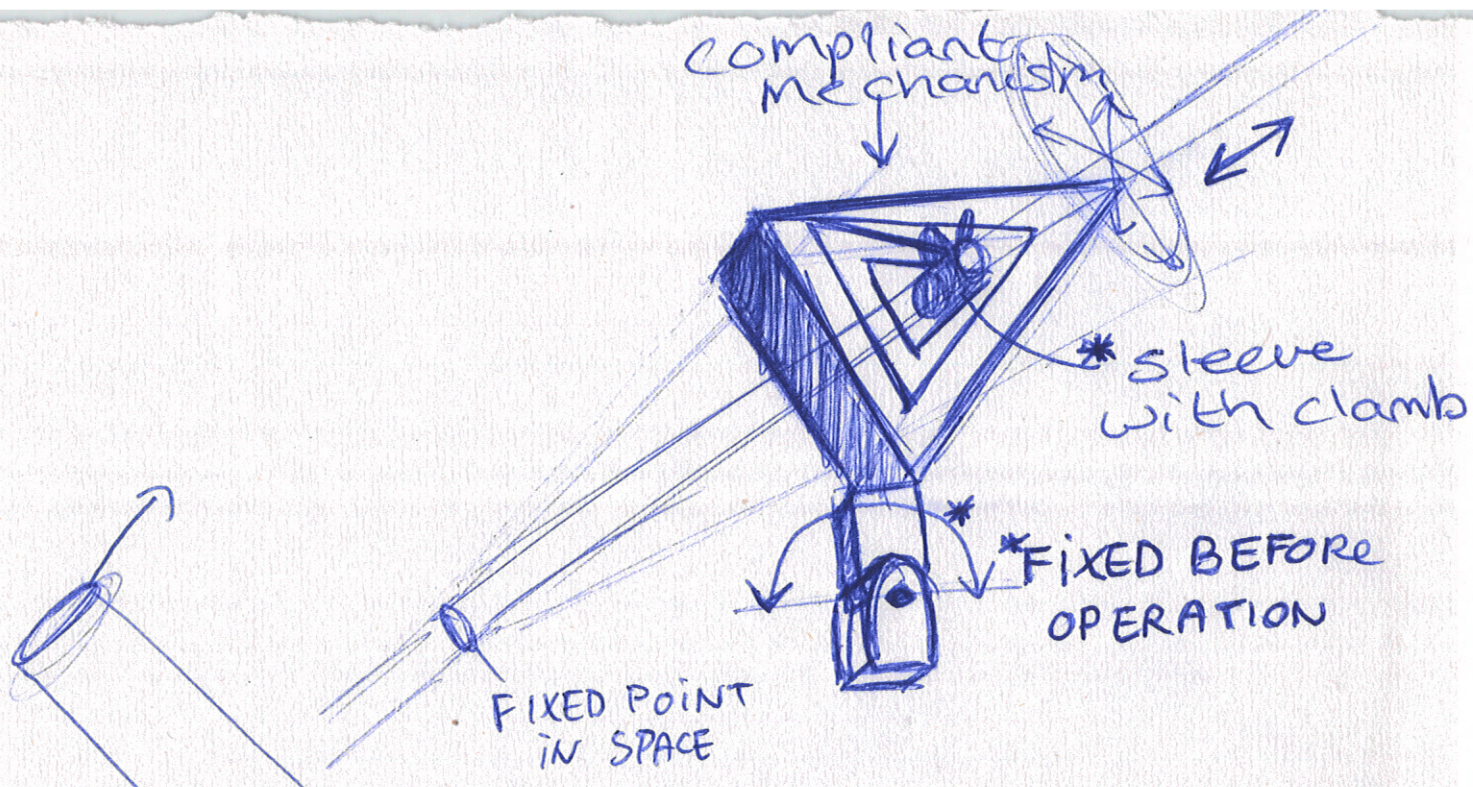 compliant
mechanism
* sleeve
with clamb
*
*FiXED BEFORe
OPERATION
FIXED POiNT
iN SPACE